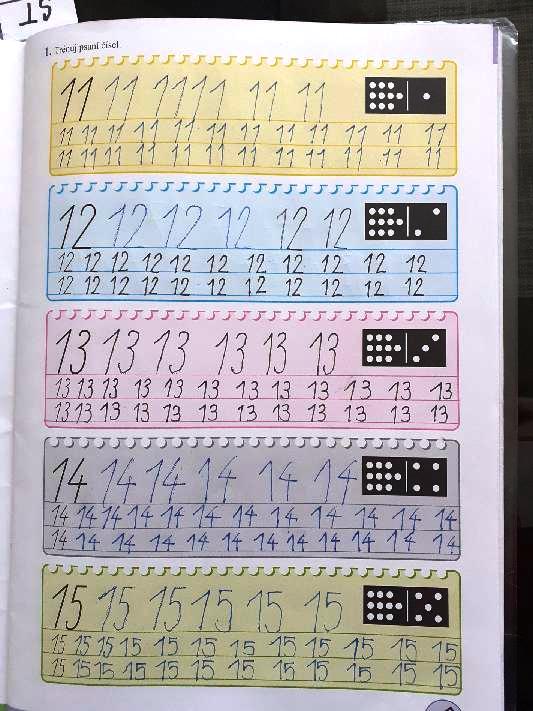 15
1. Trénuj psaní čísel.
11 11 11 11 11 11
11 11 11 11 11 11 11 11 11 11 11 11
11 11 11 11 11 11 11 11 11 11 11 11
12 12 12 12 12 12
12 12 12 12 12 12 12 12 12 12 12
12 12 12 12 12 12 12 12 12 12 12
13 13 13 13 13 13
13 13 13 13 13 13 13 13 13 13 13 13
13 13 13 13 13 13 13 13 13 13 13 13
14 14 14 14 14 14
14 14 14 14 14 14 14 14 14 14 14 14
14 14 14 14 14 14 14 14 14 14 14
15 15 15 15 15 15
15 15 15 15 15 15 15 15 15 15 15 15
15 15 15 15 15 15 15 15 15 15 15 15